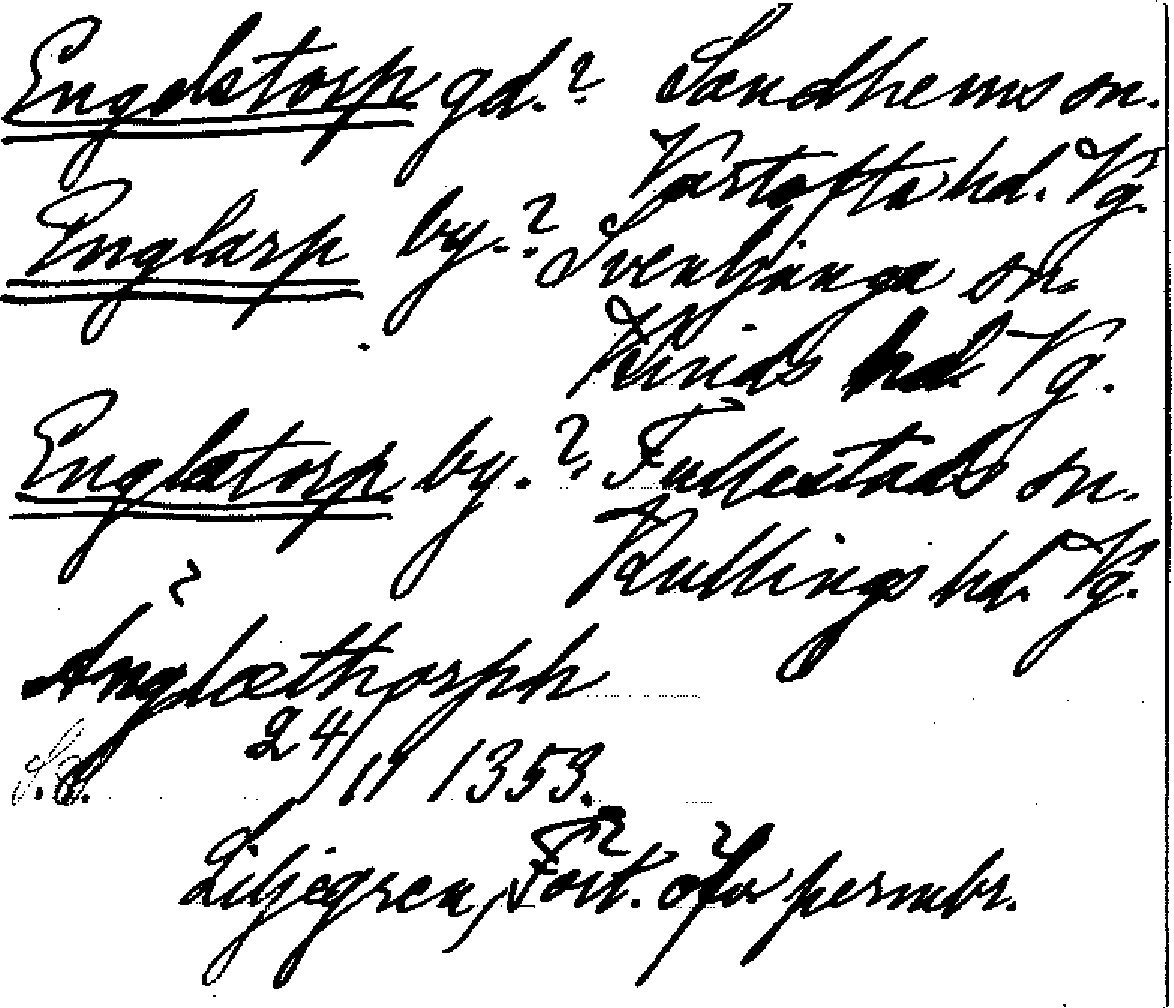 Engelstorp gd.? Sandhems sn.
Vartofta hd. Vg.
Englarp by.? Svenljunga sn.
Kinds hd. Vg.
Englatorp by.? Fullestads sn.
Kullings hd. Vg.
?
Anglæthorph
S.d. 24/11 1353.
Liljegren, Fört. öfv permbr.